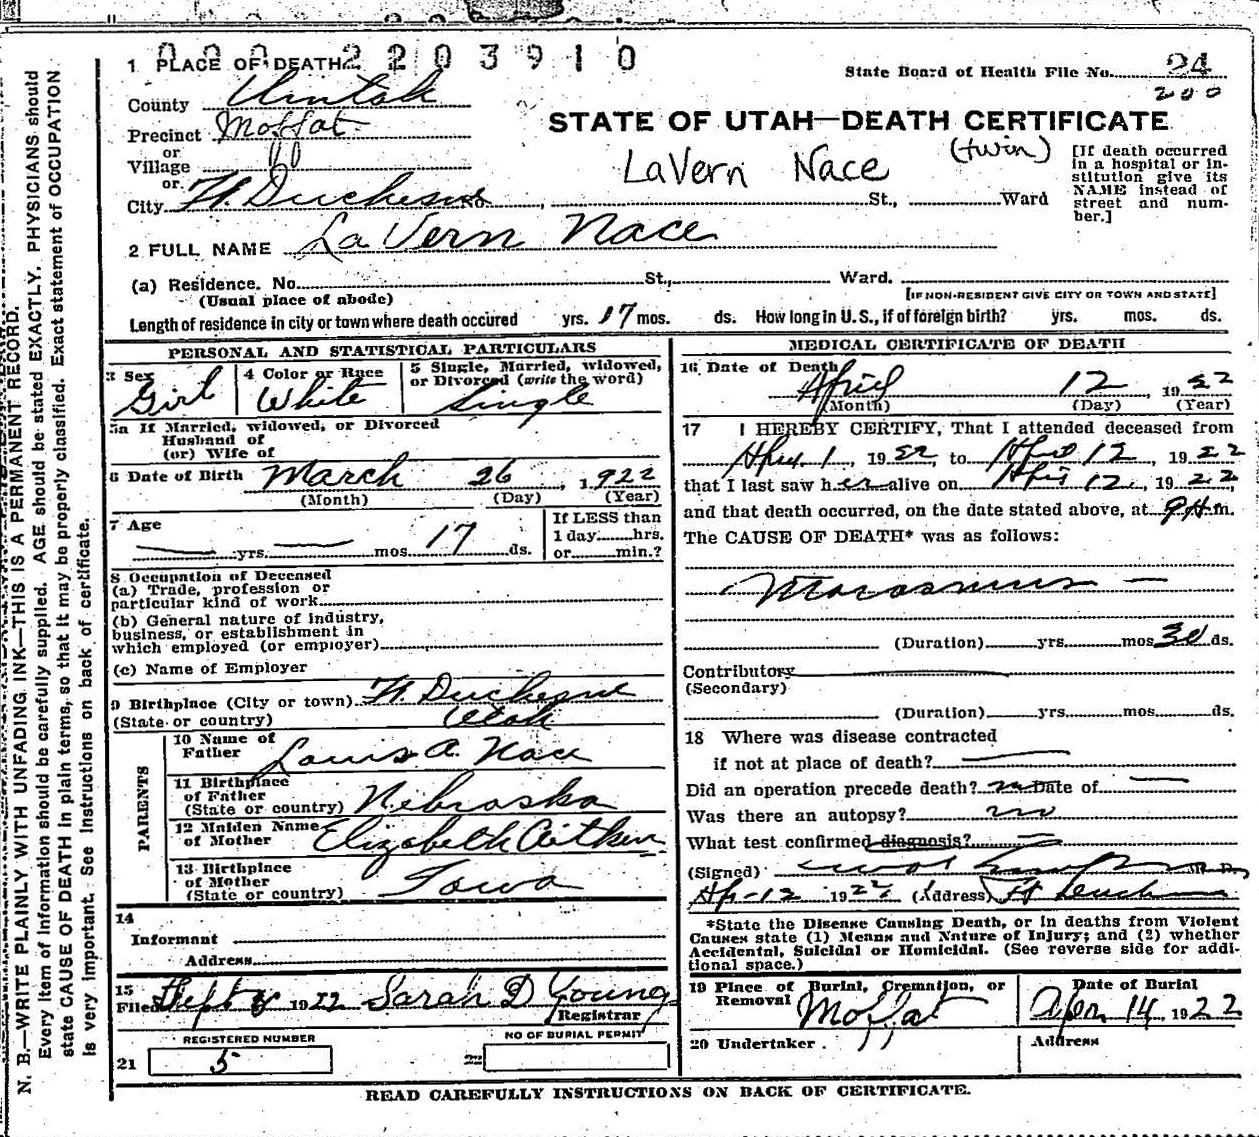 0 0 0 2 2 0 3 9 1 0
1 PLACE OF DEATH
State Board of Health File No. 24
200
County Uintah
Precinct Moffat
or
Village
or
City Ft. Duchesne No. , St., Ward
STATE OF UTAH—DEATH CERTIFICATE
LaVern Nace (twin)
[If death occurred in a hospital or institution give its NAME instead of street and number.]
2 FULL NAME La Vern Nace
(a) Residence. No. St., Ward.
(Usual place of abode)
[IF NON-RESIDENT GIVE CITY OR TOWN AND STATE]
Length of residence in city or town where death occured yrs. 17 mos. ds. How long in U. S., if of foreign birth? yrs. mos. ds.
PERSONAL AND STATISTICAL PARTICULARS
3 Sex Girl
4 Color or Race White
5 Single, Married, widowed, or Divorced (write the word) Single
5a If Married, widowed, or Divorced
Husband of
(or) Wife of
6 Date of Birth March 26, 1922
(Month) (Day) (Year)
7 Age — yrs. — mos. 17 ds.
If LESS than
1 day......hrs.
or......min.?
8 Occupation of Deceased
(a) Trade, profession or
particular kind of work
(b) General nature of industry,
business, or establishment in
which employed (or employer)
(c) Name of Employer
9 Birthplace (City or town) Ft. Duchesne
(State or country) Utah
PARENTS
10 Name of Father Louis A. Nace
11 Birthplace of Father (State or country) Nebraska
12 Maiden Name of Mother Elizabeth Aitken
13 Birthplace of Mother (State or country) Iowa
14
Informant
Address
15
Filed Sept 1922 Sarah D Young
Registrar
REGISTERED NUMBER
21 5
NO OF BURIAL PERMIT
22
MEDICAL CERTIFICATE OF DEATH
16 Date of Death April 12, 1922
(Month) (Day) (Year)
17 I HEREBY CERTIFY, That I attended deceased from
Apr. 1, 1922, to April 12, 1922
that I last saw her alive on April 12, 1922
and that death occurred, on the date stated above, at 9 A m.
The CAUSE OF DEATH* was as follows:
Marasmus —
(Duration) yrs. mos. 30 ds.
Contributory
(Secondary)
(Duration) yrs. mos. ds.
18 Where was disease contracted
if not at place of death? —
Did an operation precede death? no Date of —
Was there an autopsy? no
What test confirmed diagnosis? —
(Signed) M. D.
Ap-12 1922 (Address) Ft Duchesne
*State the Disease Causing Death, or in deaths from Violent
Causes state (1) Means and Nature of Injury; and (2) whether
Accidental, Suicidal or Homicidal. (See reverse side for additional space.)
19 Place of Burial, Cremation, or Removal Moffat
Date of Burial Apr 14 1922
20 Undertaker
Address
READ CAREFULLY INSTRUCTIONS ON BACK OF CERTIFICATE.
N. B.—WRITE PLAINLY WITH UNFADING INK—THIS IS A PERMANENT RECORD.
Every item of information should be carefully supplied. AGE should be stated EXACTLY. PHYSICIANS should
state CAUSE OF DEATH in plain terms, so that it may be properly classified. Exact statement of OCCUPATION
is very important. See instructions on back of certificate.